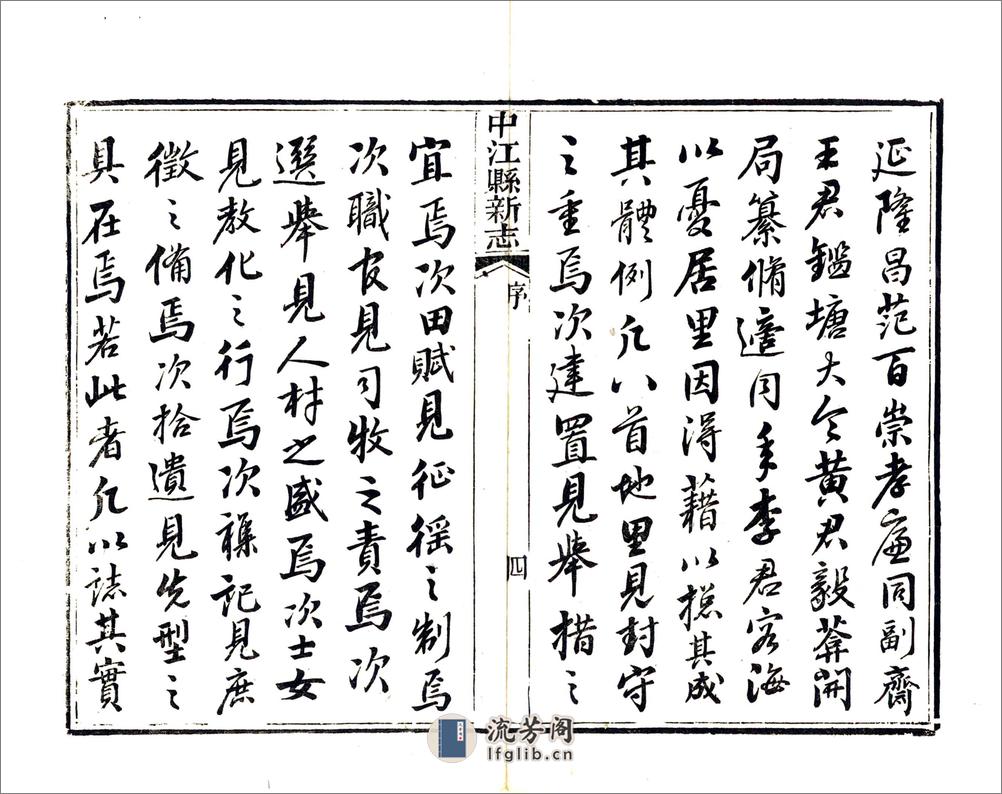 延隆昌范百崇孝廉同副齋
王君鑑塘大令黃君毅菴開
局纂脩適同年李君容海
以憂居里因得藉以摠其成
其體例凡八首地里見封守
之重焉次建置見舉措之
中江縣新志
序
四
宜焉次田賦見征徭之制焉
次職官見司牧之責焉次
選舉見人材之盛焉次士女
見教化之行焉次襍記見庶
徵之備焉次拾遺見先型之
具在焉若此者凡以誌其實
流芳阁
lfglib.cn